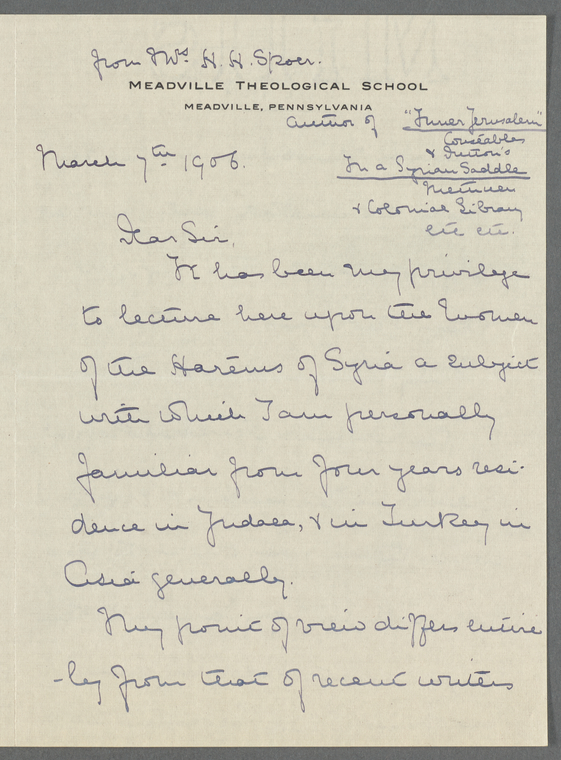 from Mrs. H. H. Spoer.
MEADVILLE THEOLOGICAL SCHOOL
MEADVILLE, PENNSYLVANIA
author of "Inner Jerusalem"
Constables
& Dutton's
March 7th 1906.
In a Syrian Saddle
Methuen
& Colonial Library
etc etc.
Dear Sir,
It has been my privilege
to lecture here upon the Women
of the Hareems of Syria a subject
with which I am personally
familiar from four years resi-
dence in Judaea, & in Turkey in
Asia generally.
My point of view differs entire
-ly from that of recent writers